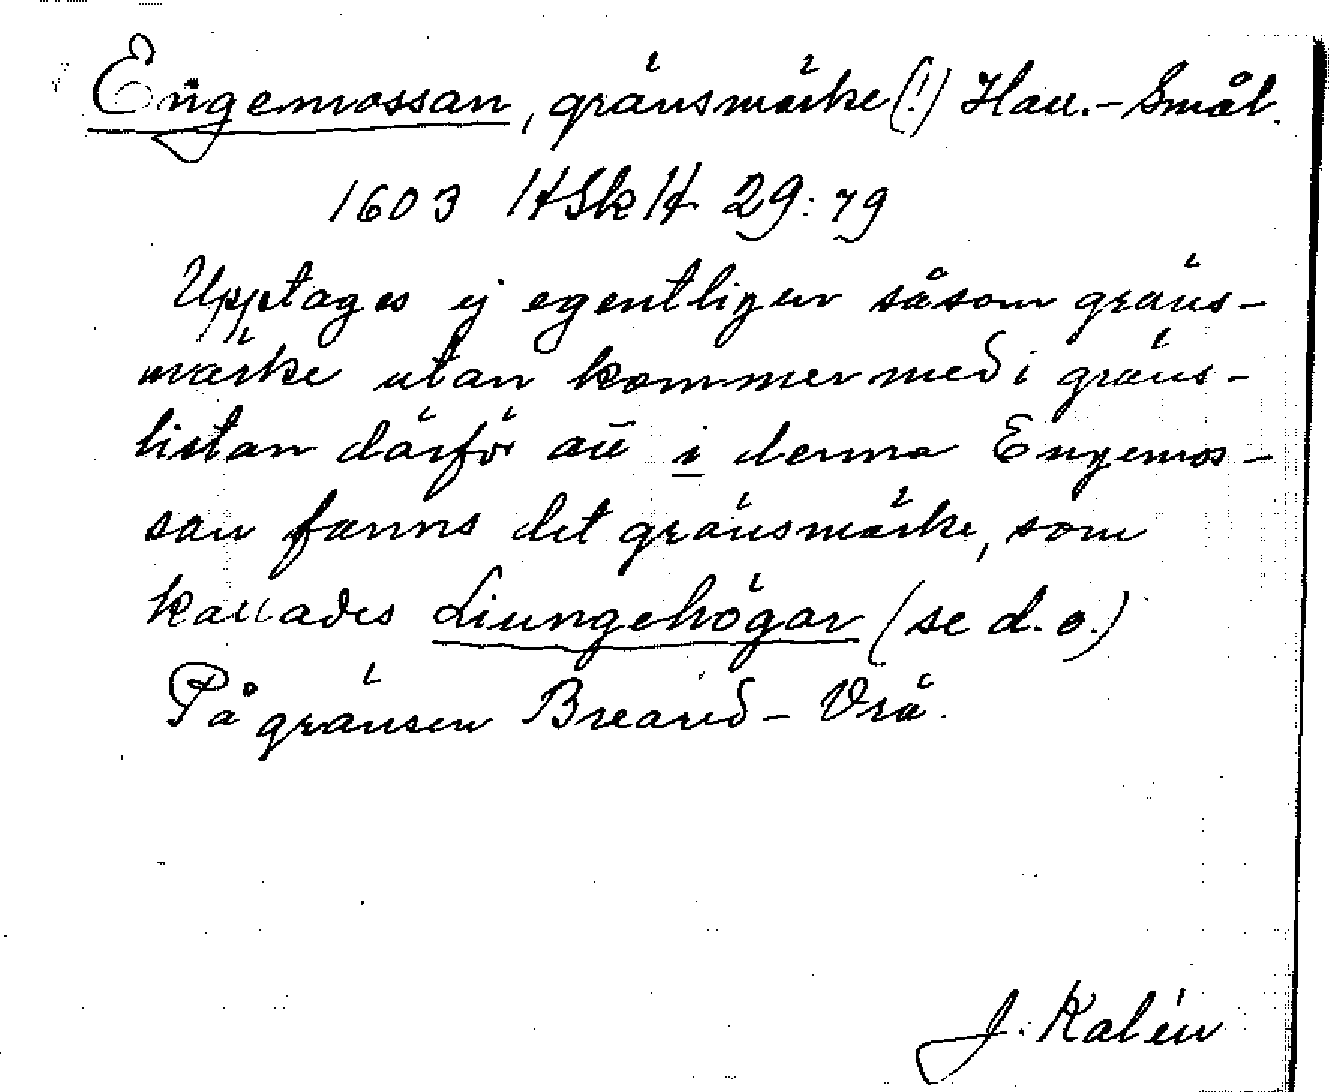 Engemossan, gränsmärke (!) Hall.-Smål.
1603 HSkH 29:79
Upptages ej egentligen såsom gräns-
märke utan kommer med i gräns-
listan därför att i denna Engemos-
san fanns det gränsmärke, som
kallades Liungehögar (se d.o.)
På gränsen Breared - Vrå.
J. Kalén